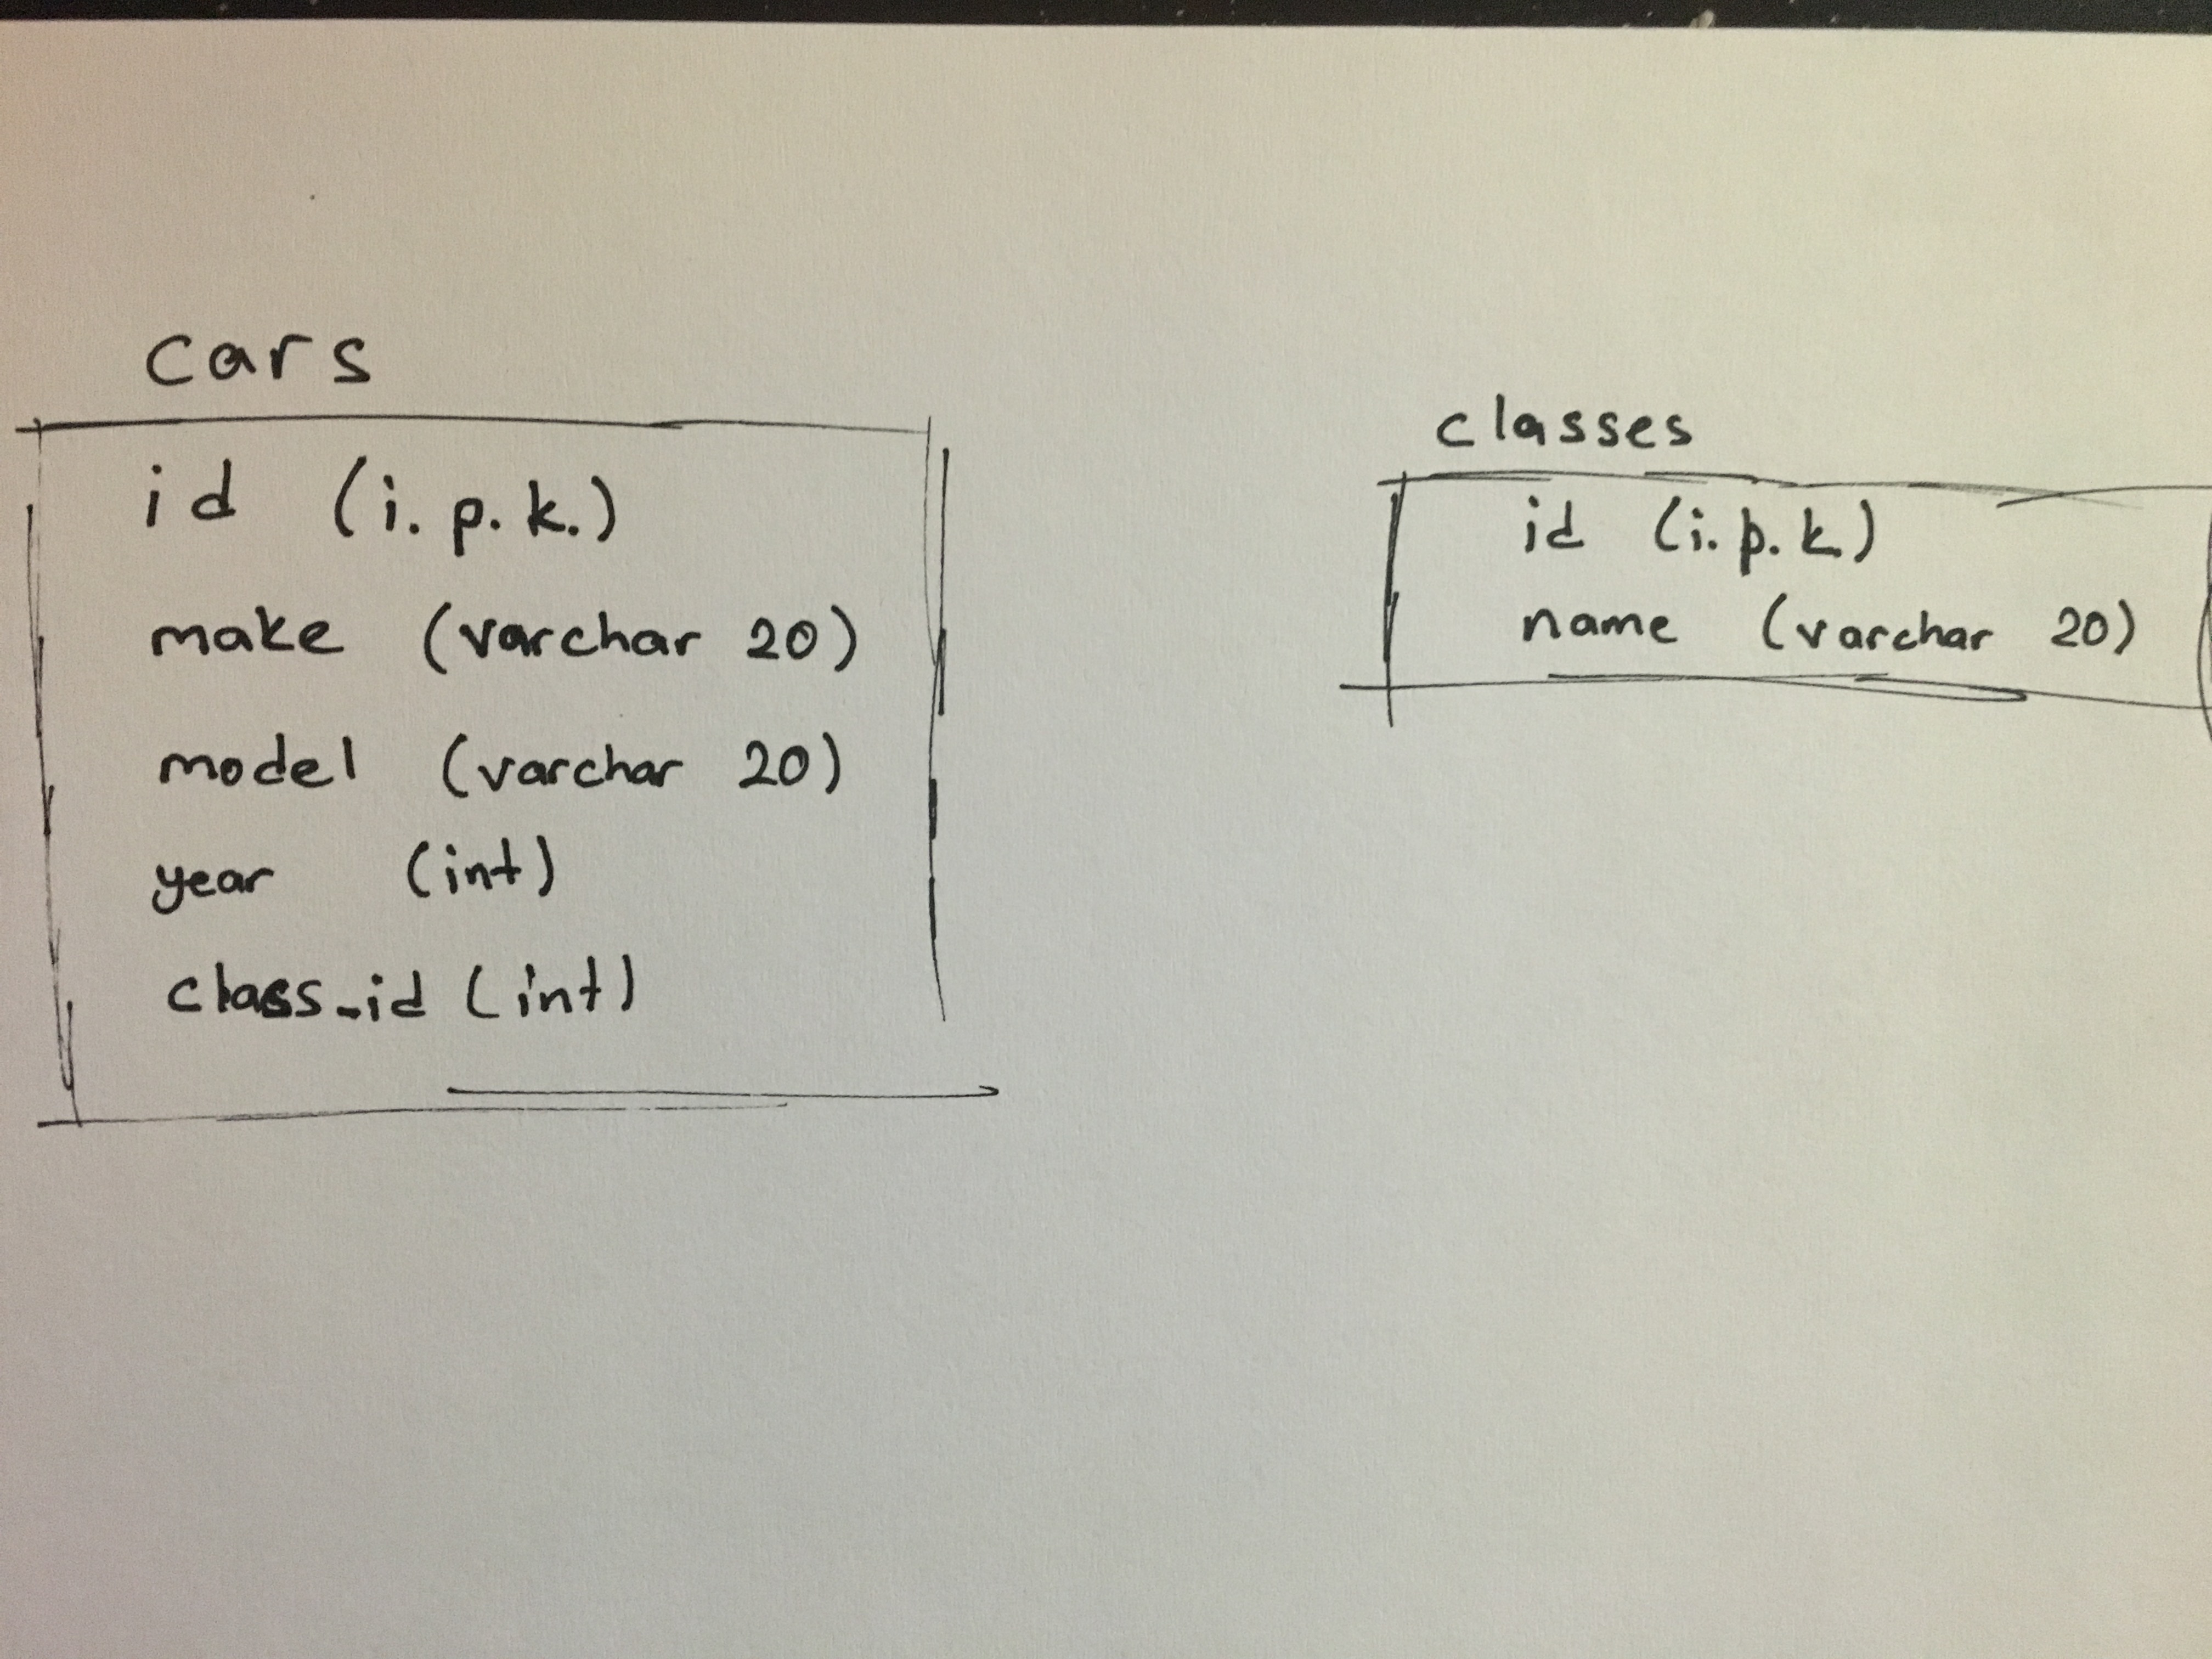 cars
id (i.p.k.)
make (varchar 20)
model (varchar 20)
year (int)
class_id (int)
classes
id (i.p.k)
name (varchar 20)